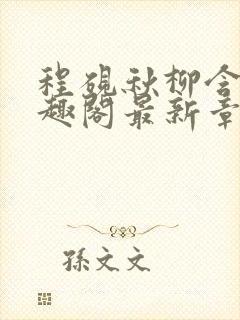 程砚秋柳含
趣阁最新章
孫文文